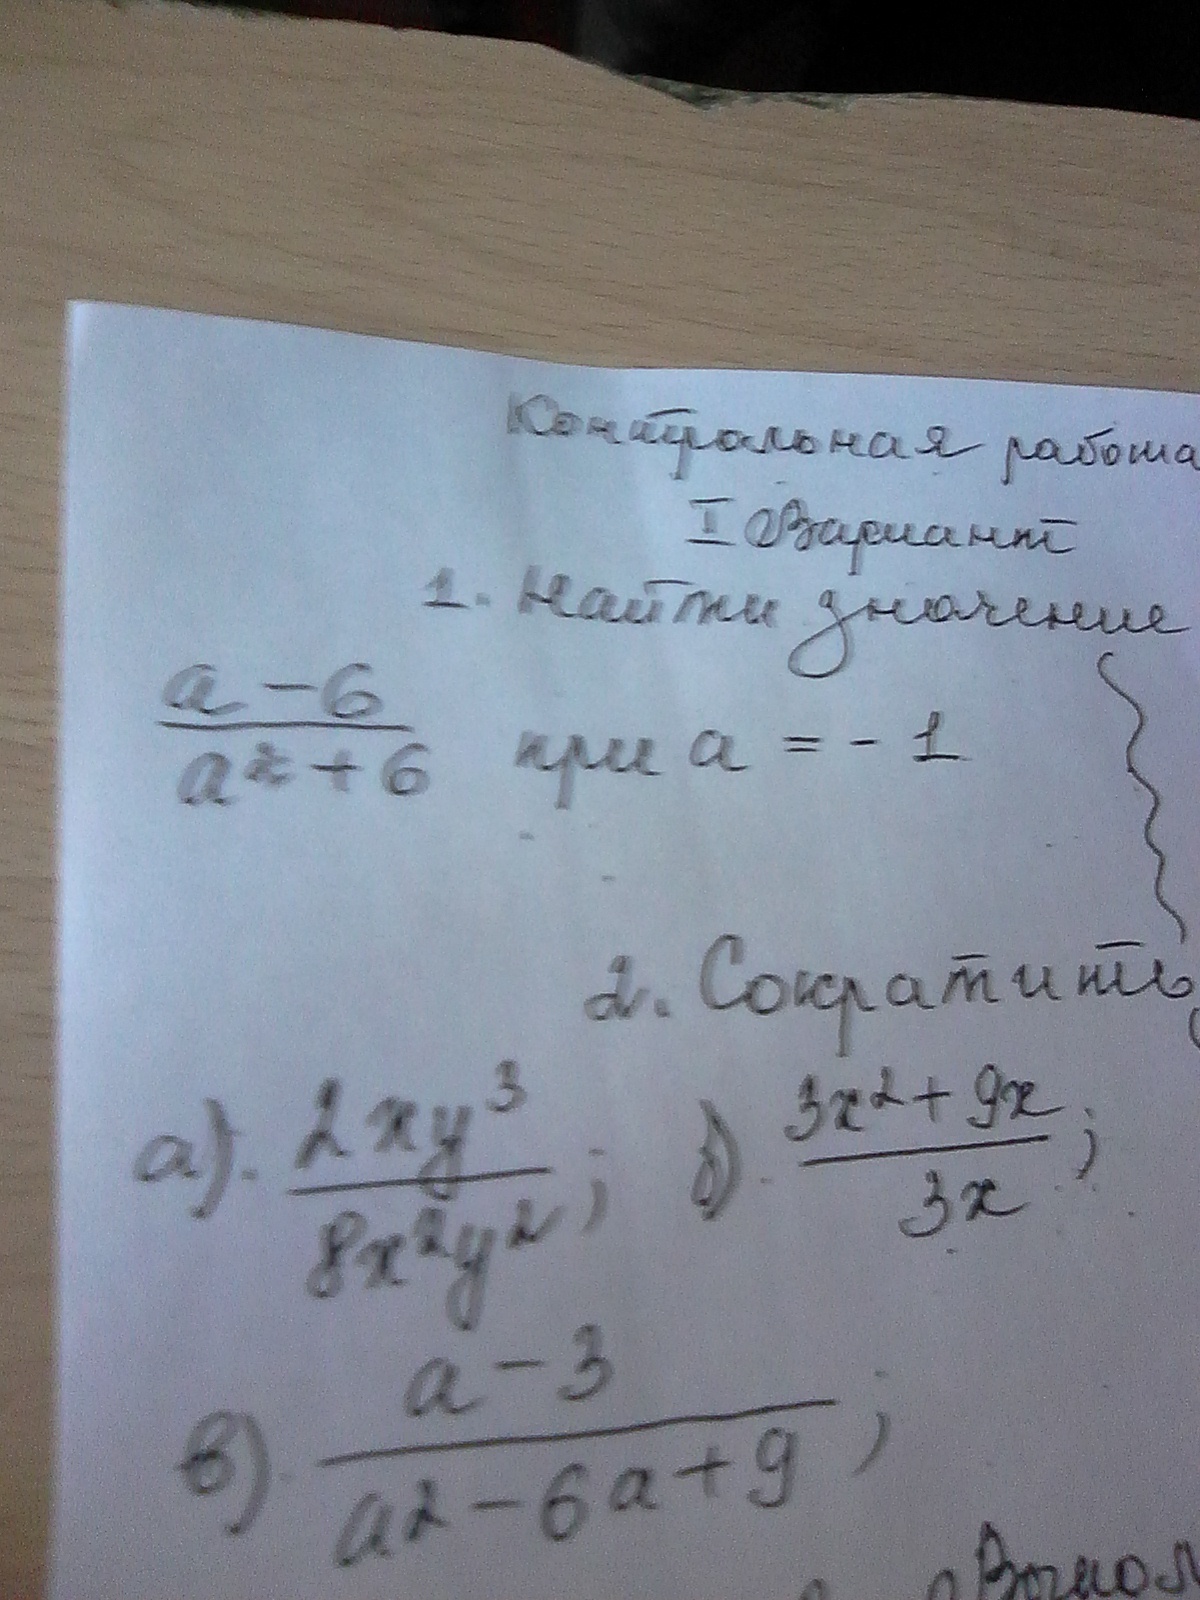 Контрольная работа
I Вариант
1. Найти значение
a - 6 / a² + 6 при a = - 1
2. Сократить
а). 2xy³ / 8x²y² ; б). 3x² + 9x / 3x ;
в) a - 3 / a² - 6a + 9 ;